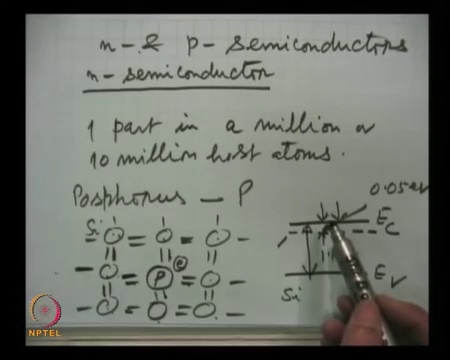 n- & p- semiconductors
n- semiconductor
1 part in a million or
10 million host atoms.
Posphorus - P
0.05 eV
Si
e
Ec
P
Ev
Si
NPTEL